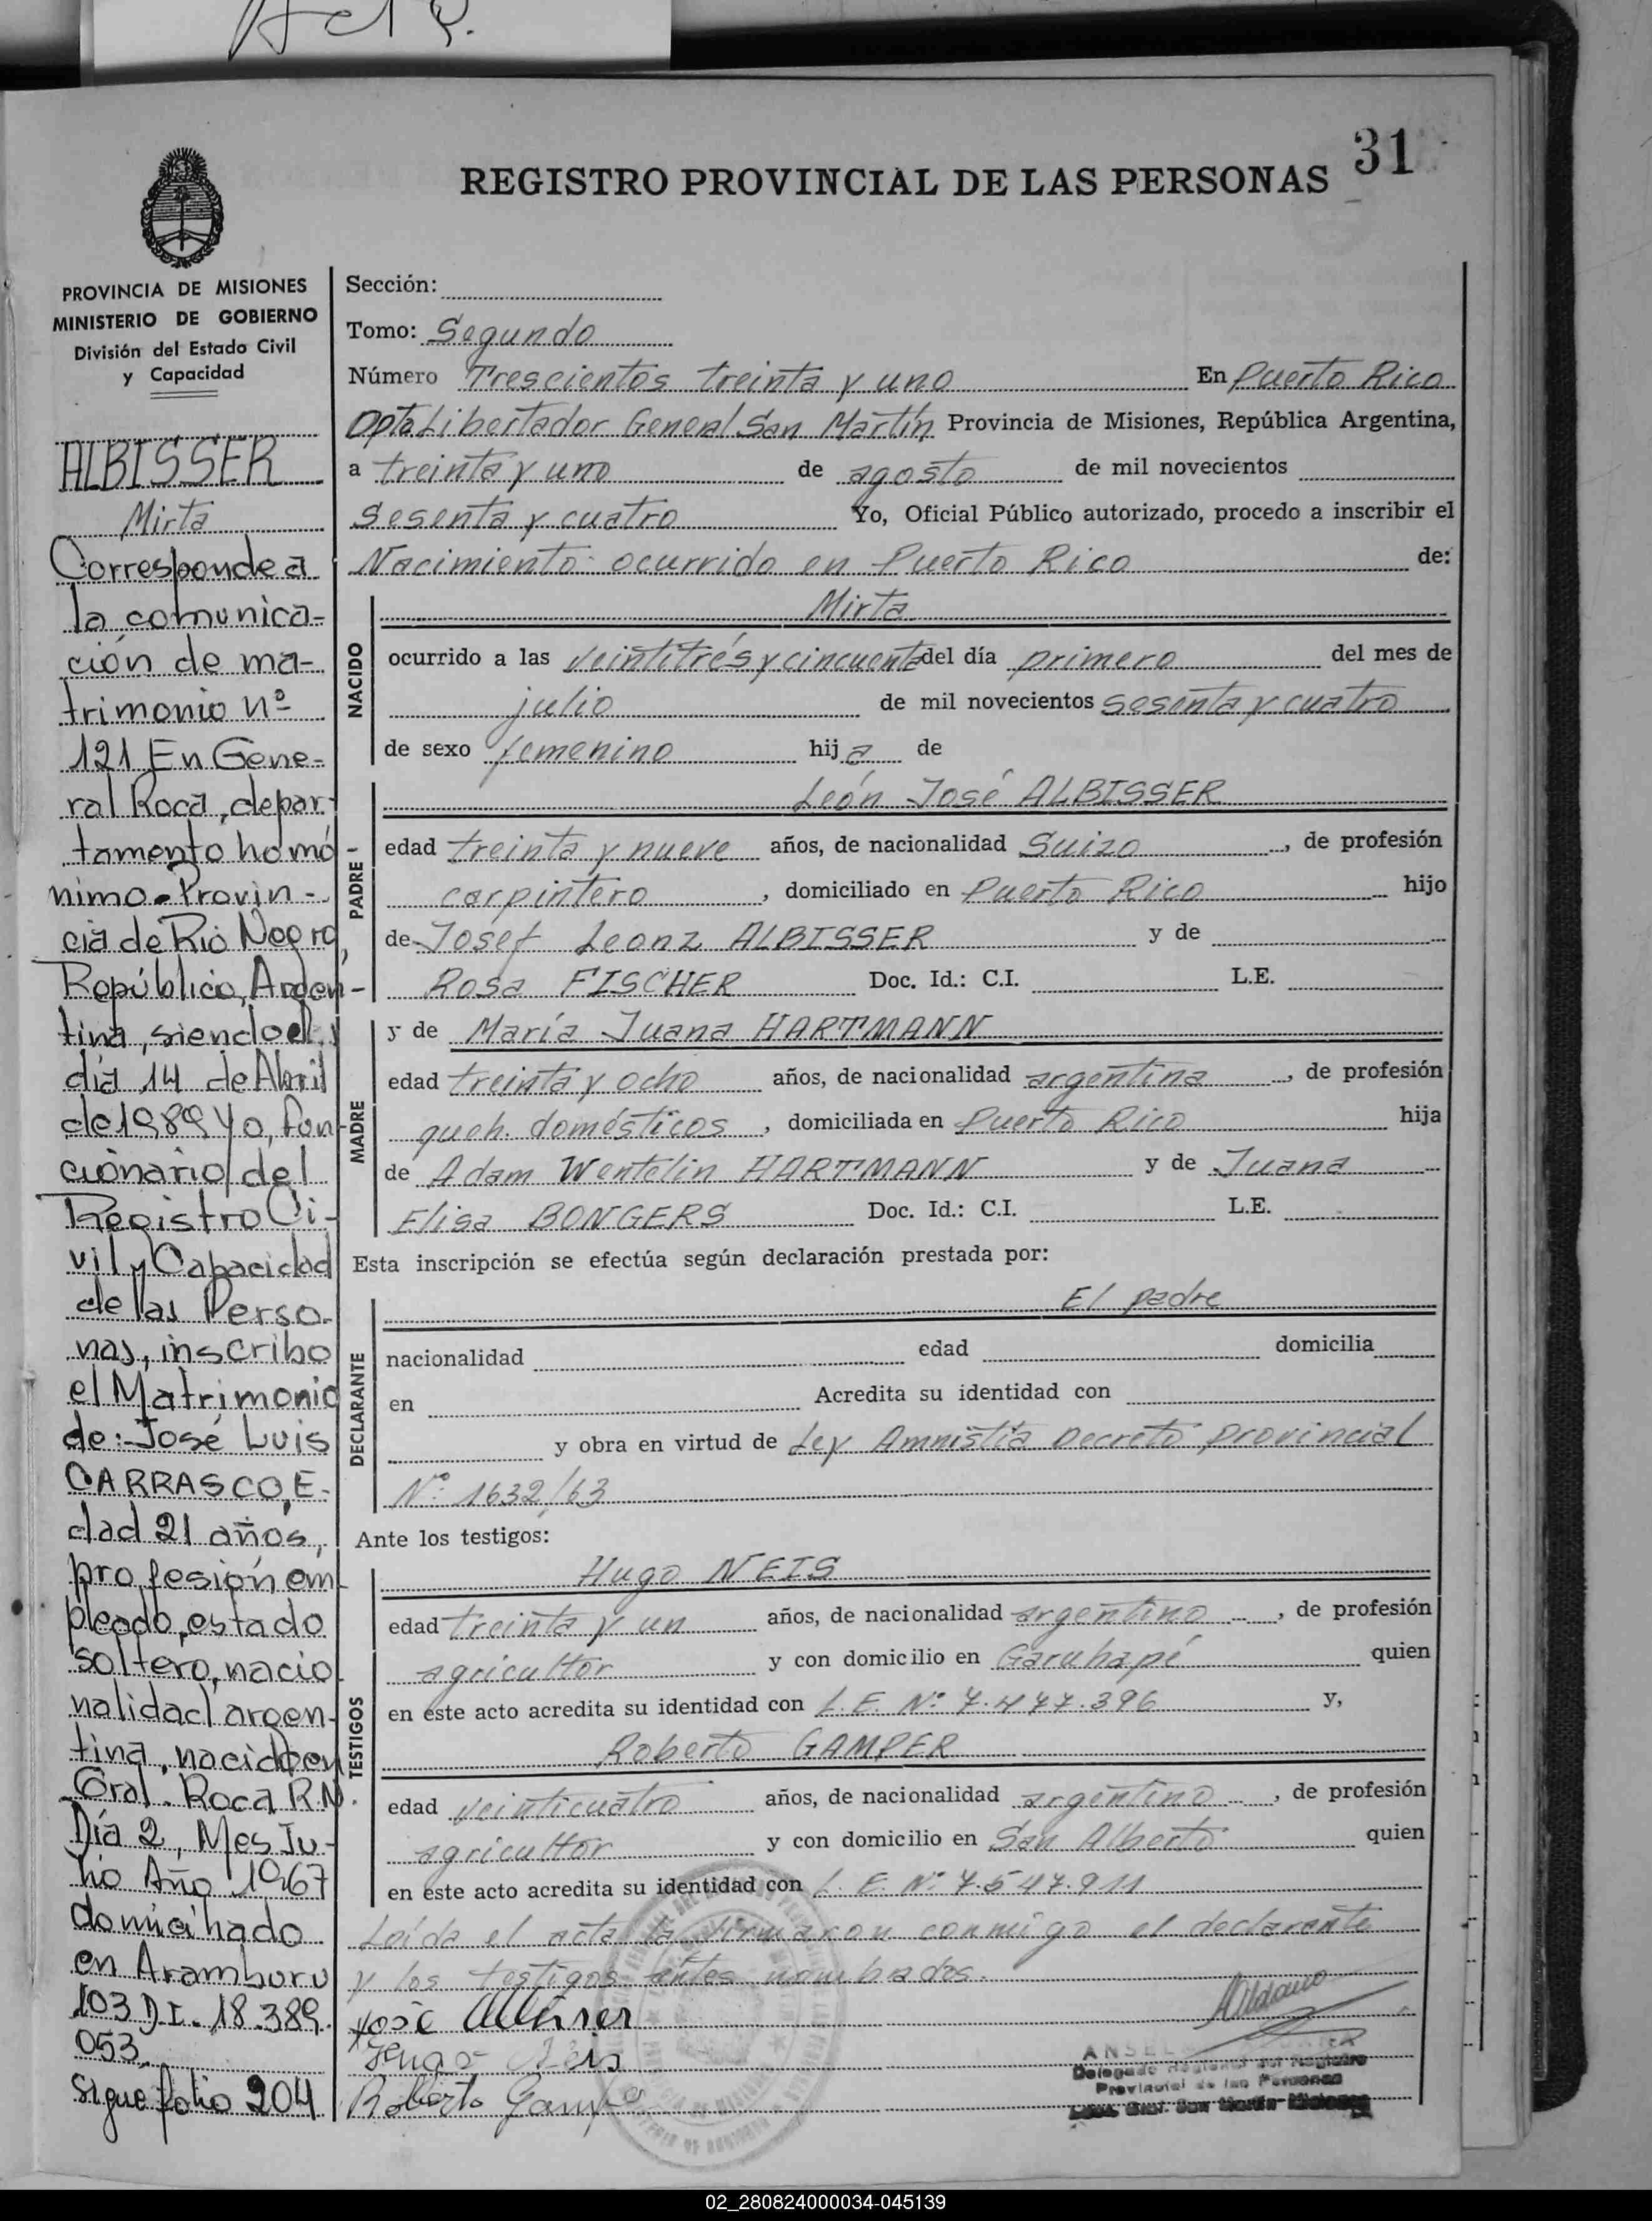 Acta.
31
REGISTRO PROVINCIAL DE LAS PERSONAS
PROVINCIA DE MISIONES
MINISTERIO DE GOBIERNO
División del Estado Civil
y Capacidad
ALBISSER
Mirta
Corresponde a
la comunica-
ción de ma-
trimonio nº
121 En Gene-
ral Roca, depar-
tamento homó-
nimo. Provin-
cia de Rio Negro,
República Argen-
tina, siendo el
día 14 de Abril
de 1989 Yo, fun-
cionario del
Registro Ci-
vil y Capacidad
de las Perso-
nas, inscribo
el Matrimonio
de: José Luis
CARRASCO, E-
dad 21 años,
profesión em-
pleado, estado
soltero, nacio-
nalidad argen-
tina, nacido en
Gral. Roca R.N.
Día 2, Mes Ju-
lio Año 1967
domiciliado
en Aramburu
103 D.I. 18.389.
053.
sigue folio 204
Sección:
Tomo: Segundo
Número Trescientos treinta y uno En Puerto Rico
Dpto. Libertador General San Martín Provincia de Misiones, República Argentina,
a treinta y uno de agosto de mil novecientos
sesenta y cuatro Yo, Oficial Público autorizado, procedo a inscribir el
Nacimiento ocurrido en Puerto Rico de:
NACIDO
Mirta
ocurrido a las veintitrés y cincuenta del día primero del mes de
julio de mil novecientos sesenta y cuatro
de sexo femenino hija de
PADRE
León José ALBISSER
edad treinta y nueve años, de nacionalidad Suizo, de profesión
carpintero, domiciliado en Puerto Rico hijo
de Josef Leonz ALBISSER y de
Rosa FISCHER Doc. Id.: C.I. L.E.
MADRE
y de María Juana HARTMANN
edad treinta y ocho años, de nacionalidad argentina, de profesión
queh. domésticos, domiciliada en Puerto Rico hija
de Adam Wentelin HARTMANN y de Juana
Elisa BONGERS Doc. Id.: C.I. L.E.
Esta inscripción se efectúa según declaración prestada por:
DECLARANTE
El padre
nacionalidad edad domicilia
en Acredita su identidad con
y obra en virtud de Ley Amnistía Decreto provincial
Nº: 1632/63
Ante los testigos:
TESTIGOS
Hugo NEIS
edad treinta y un años, de nacionalidad argentino, de profesión
agricultor y con domicilio en Garuhapé quien
en este acto acredita su identidad con L.E. Nº 7.477.396 y,
Roberto GAMPER
edad veinticuatro años, de nacionalidad argentino, de profesión
agricultor y con domicilio en San Alberto quien
en este acto acredita su identidad con L.E. Nº 7.547.911
Leída el acta la firmaron conmigo el declarante
y los testigos antes nombrados.
José Albisser
Hugo Neis
Roberto Gamper
Delegado Regional del Registro
Provincial de las Personas
02_280824000034-045139